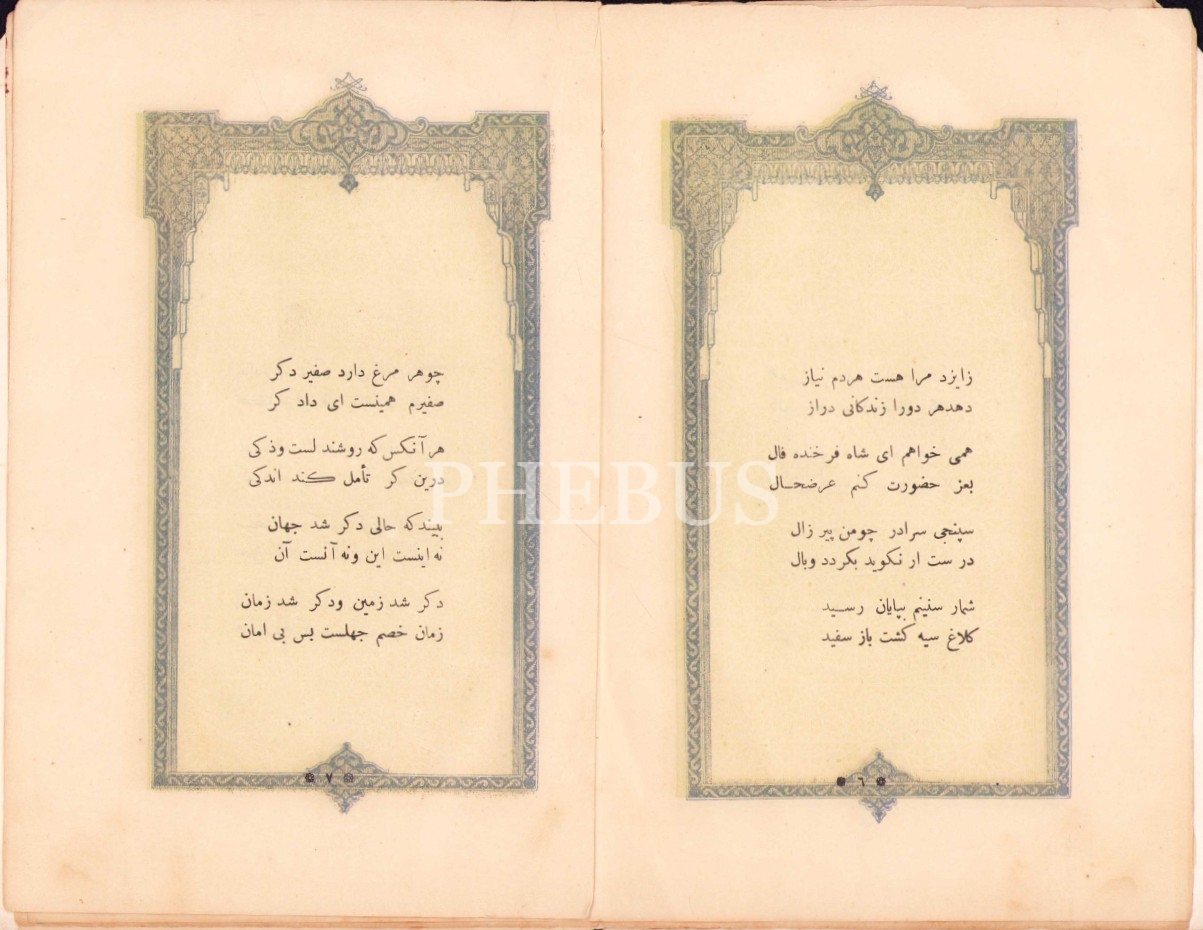 زایزد مرا هست هردم نیاز
دهدهر دورا زندکانی دراز
همی خواهم ای شاه فرخنده فال
بعز حضورت کنم عرضحال
سپنجی سرادر چومن پیر زال
درست ار نکوید بکردد وبال
شمار سنینم بپایان رسید
کلاغ سیه کشت باز سفید
٦
چوهر مرغ دارد صفیر دکر
صفیرم همینست ای داد کر
هرآنکس که روشند لست وذکی
درین کر تأمل کند اندکی
ببیندکه حالی دکر شد جهان
نه اینست این ونه آنست آن
دکر شد زمین ودکر شد زمان
زمان خصم جهلست بس بی امان
٧
PHEBUS